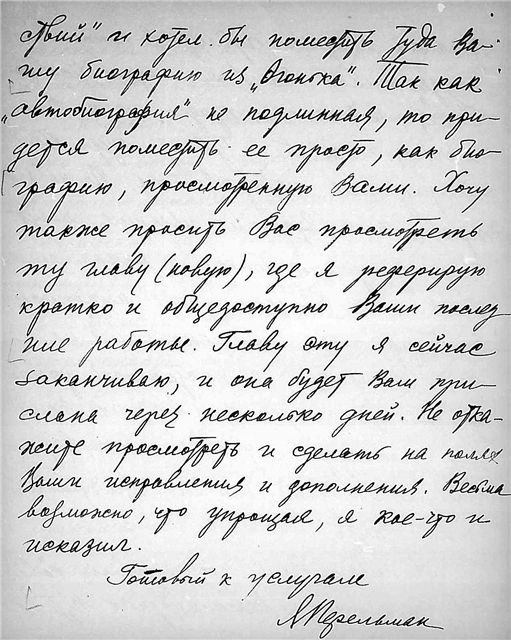 ствий" и хотел бы поместить туда Ва-
шу биографию из „Огонька". Так как
„автобиография" не подлинная, то при-
дется поместить ее просто, как био-
графию, просмотренную Вами. Хочу
также просить Вас просмотреть
ту главу (новую), где я реферирую
кратко и общедоступно Ваши послед
ние работы. Главу эту я сейчас
заканчиваю, и она будет Вам при-
слана через несколько дней. Не отка-
жите просмотреть и сделать на полях
Ваши исправления и дополнения. Весьма
возможно, что упрощая, я кое-что и
исказил.
Готовый к услугам
ЯПерельман